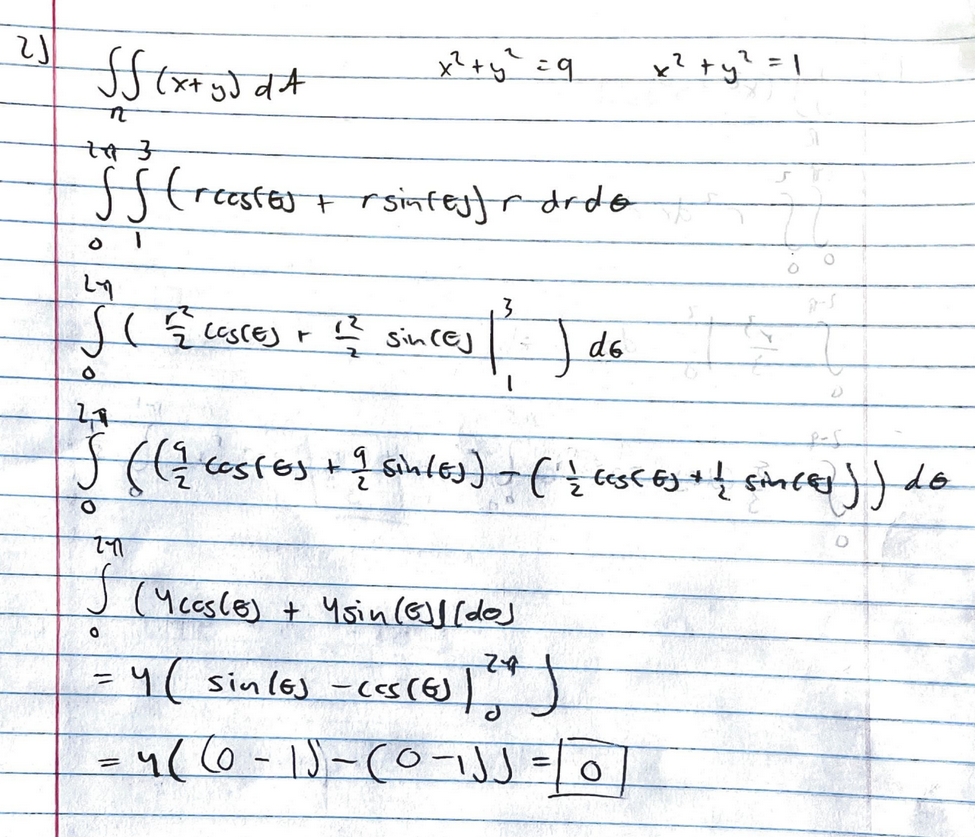 2) ∬_R (x+y) dA    x² + y² = 9    x² + y² = 1
∫_0^{2π} ∫_1^3 (r cos(θ) + r sin(θ)) r dr dθ
∫_0^{2π} ( r²/2 cos(θ) + r²/2 sin(θ) |_1^3 ) dθ
∫_0^{2π} ((9/2 cos(θ) + 9/2 sin(θ)) - (1/2 cos(θ) + 1/2 sin(θ))) dθ
∫_0^{2π} (4cos(θ) + 4sin(θ))(dθ)
= 4( sin(θ) - cos(θ) |_0^{2π} )
= 4( (0 - 1) - (0 - 1)) = 0